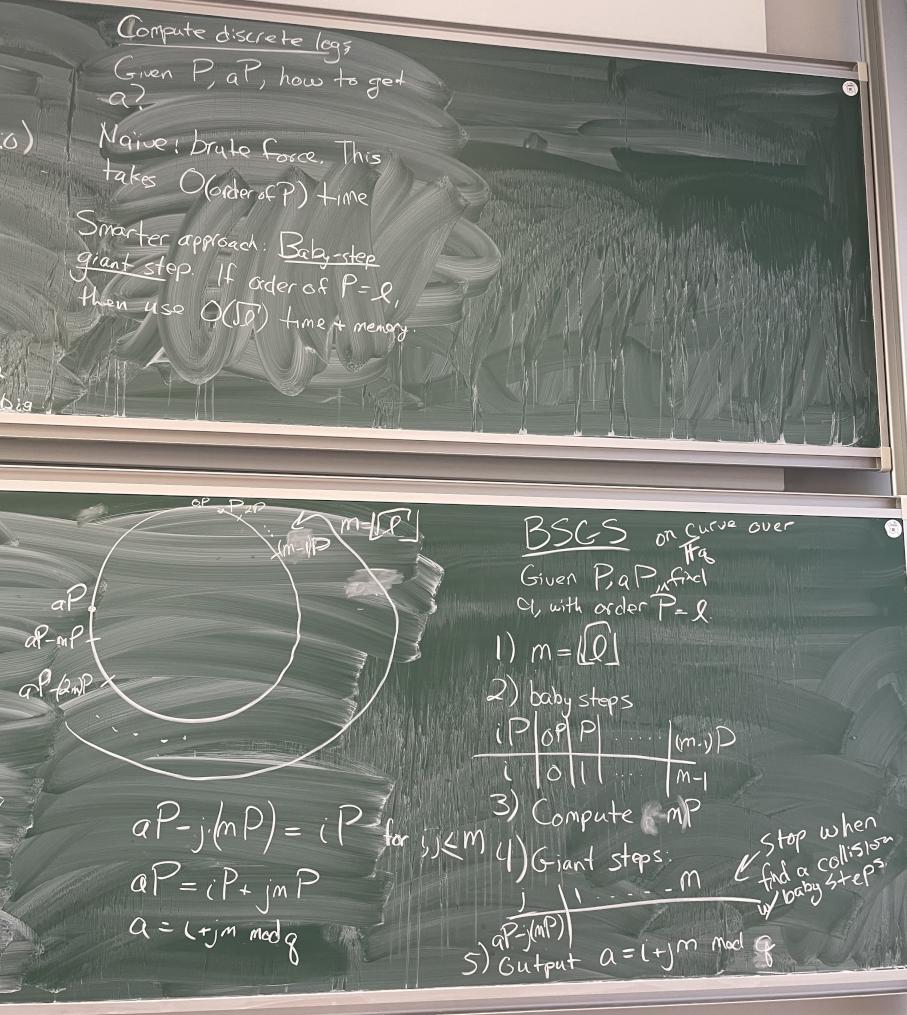 Compute discrete logs
Given P, aP, how to get
a?
Naïve: brute force. This
takes O(order of P) time
Smarter approach: Baby-step
giant step. If order of P=l,
then use O(√l) time + memory.
big
0P P 2P
(m-1)P
m=⌈√l⌉
aP
aP-mP
aP-(2m)P
.....
aP-j(mP) = iP for i,j<m
aP = iP + jmP
a = i+jm mod q
BSGS on curve over
𝔽q
Given P, aP, find
a, with order P=l
1) m=⌈√l⌉
2) baby steps
iP | 0P | P | ...... | (m-1)P
i | 0 | 1 | ... | m-1
3) Compute -mP
4) Giant steps:
Stop when
find a collision
w/ baby steps
j | 1 ...... m
aP-j(mP) |
5) Output a=i+jm mod q